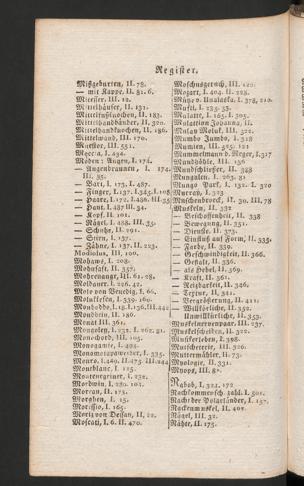 Register.
Mißgeburten, II. 78.
— mit Kappe, II. 81. 6.
Miteiser, III. 12.
Mittelhäuser, II. 131.
Mittelfußknochen, II. 183.
Mittelhandbänder, II.
Mittelhandknochen, II. 186.
Mittelwand, III. 170.
Moden: Augen, I. 174.
— Augenbraunen, I. 174.
III. 35.
— Bart, I. 173. I. 487.
— Finger, I. 137.
— Haare, I. 172. I. 436. III. 35
— Haut, I. 487 III. 34.
— Kopf, II. 101.
— Nägel, I. 488. III. 35.
— Schuhe, II. 291.
— Stirn, I. 137.
— Zähne, I. 137. II. 223.
Modiolus, III, 100.
Mohawks, I. 208.
Mohnsaft, II. 357.
Mohrenangr, III. 61. 28.
Moldauer, I. 226. 42.
Molo von Venedig, I. 66.
Molukkesen, I. 339. 160.
Mondbein, II. 186.
Monat III. 361.
Mongolen, I. 231. I. 262.
Monochord, III. 105.
Monogamie, I. 404.
Monomotapawerder, I. 335.
Mourblanc, I. 125.
Mordwin, I. 280. 103.
Morean, II. 171.
Morghen, I. 15.
Moriz von Dessau, II, 22.
Moscati, I. 6. II. 470.
Moschusgeruch, III. 122.
Mozart, I. 404. II. 228.
Mufti, I. 235. 53.
Mulatte, I. 165. I. 305.
Mulattion Johanna, II.
Mulay Moluk, III. 322.
Mumbo Jumbo, I. 318
Mumien, III. 305. 121
Mummelmann b. Neger, I. 317
Mundhöhle, III. 136
Mundschließer, II. 328
Mungalen, I. 263. 81
Mungo Park, I. 132. I. 320
Murray, I. 323
Muschenbroek, II. 39. III. 78
Muskeln, II. 332
— Beschaffenheit, II. 338
— Bewegung, II. 351.
— Dienste, II. 373.
— Einfluß auf Form, II. 335.
— Farbe, II. 359.
— Geschwindigkeit, II. 366.
— Gestalt, II. 336.
— als Hebel, II. 369.
— Kraft, II. 361.
— Reizbarkeit, II. 346,
— Textur, II. 341.
— Vergrößerung, II. 411;
— Willkürliche, II. 352.
Unwillkürliche, II. 353.
Muskelnervenpaar, III. 237.
Muskelscheiden, II. 322.
Muskorleben, I. 398
Mutscheterie, III. 326.
Muttermähler, II. 73.
Myologie, II. 331.
Myops, III. 87.
Nabab, I. 324. 172
Nachkommensch. zahl. I. 501.
Nacht der Polarländer, I. 157.
Nackenmuskel, II. 401.
Nägel, III. 32.
Nähte, II. 175.